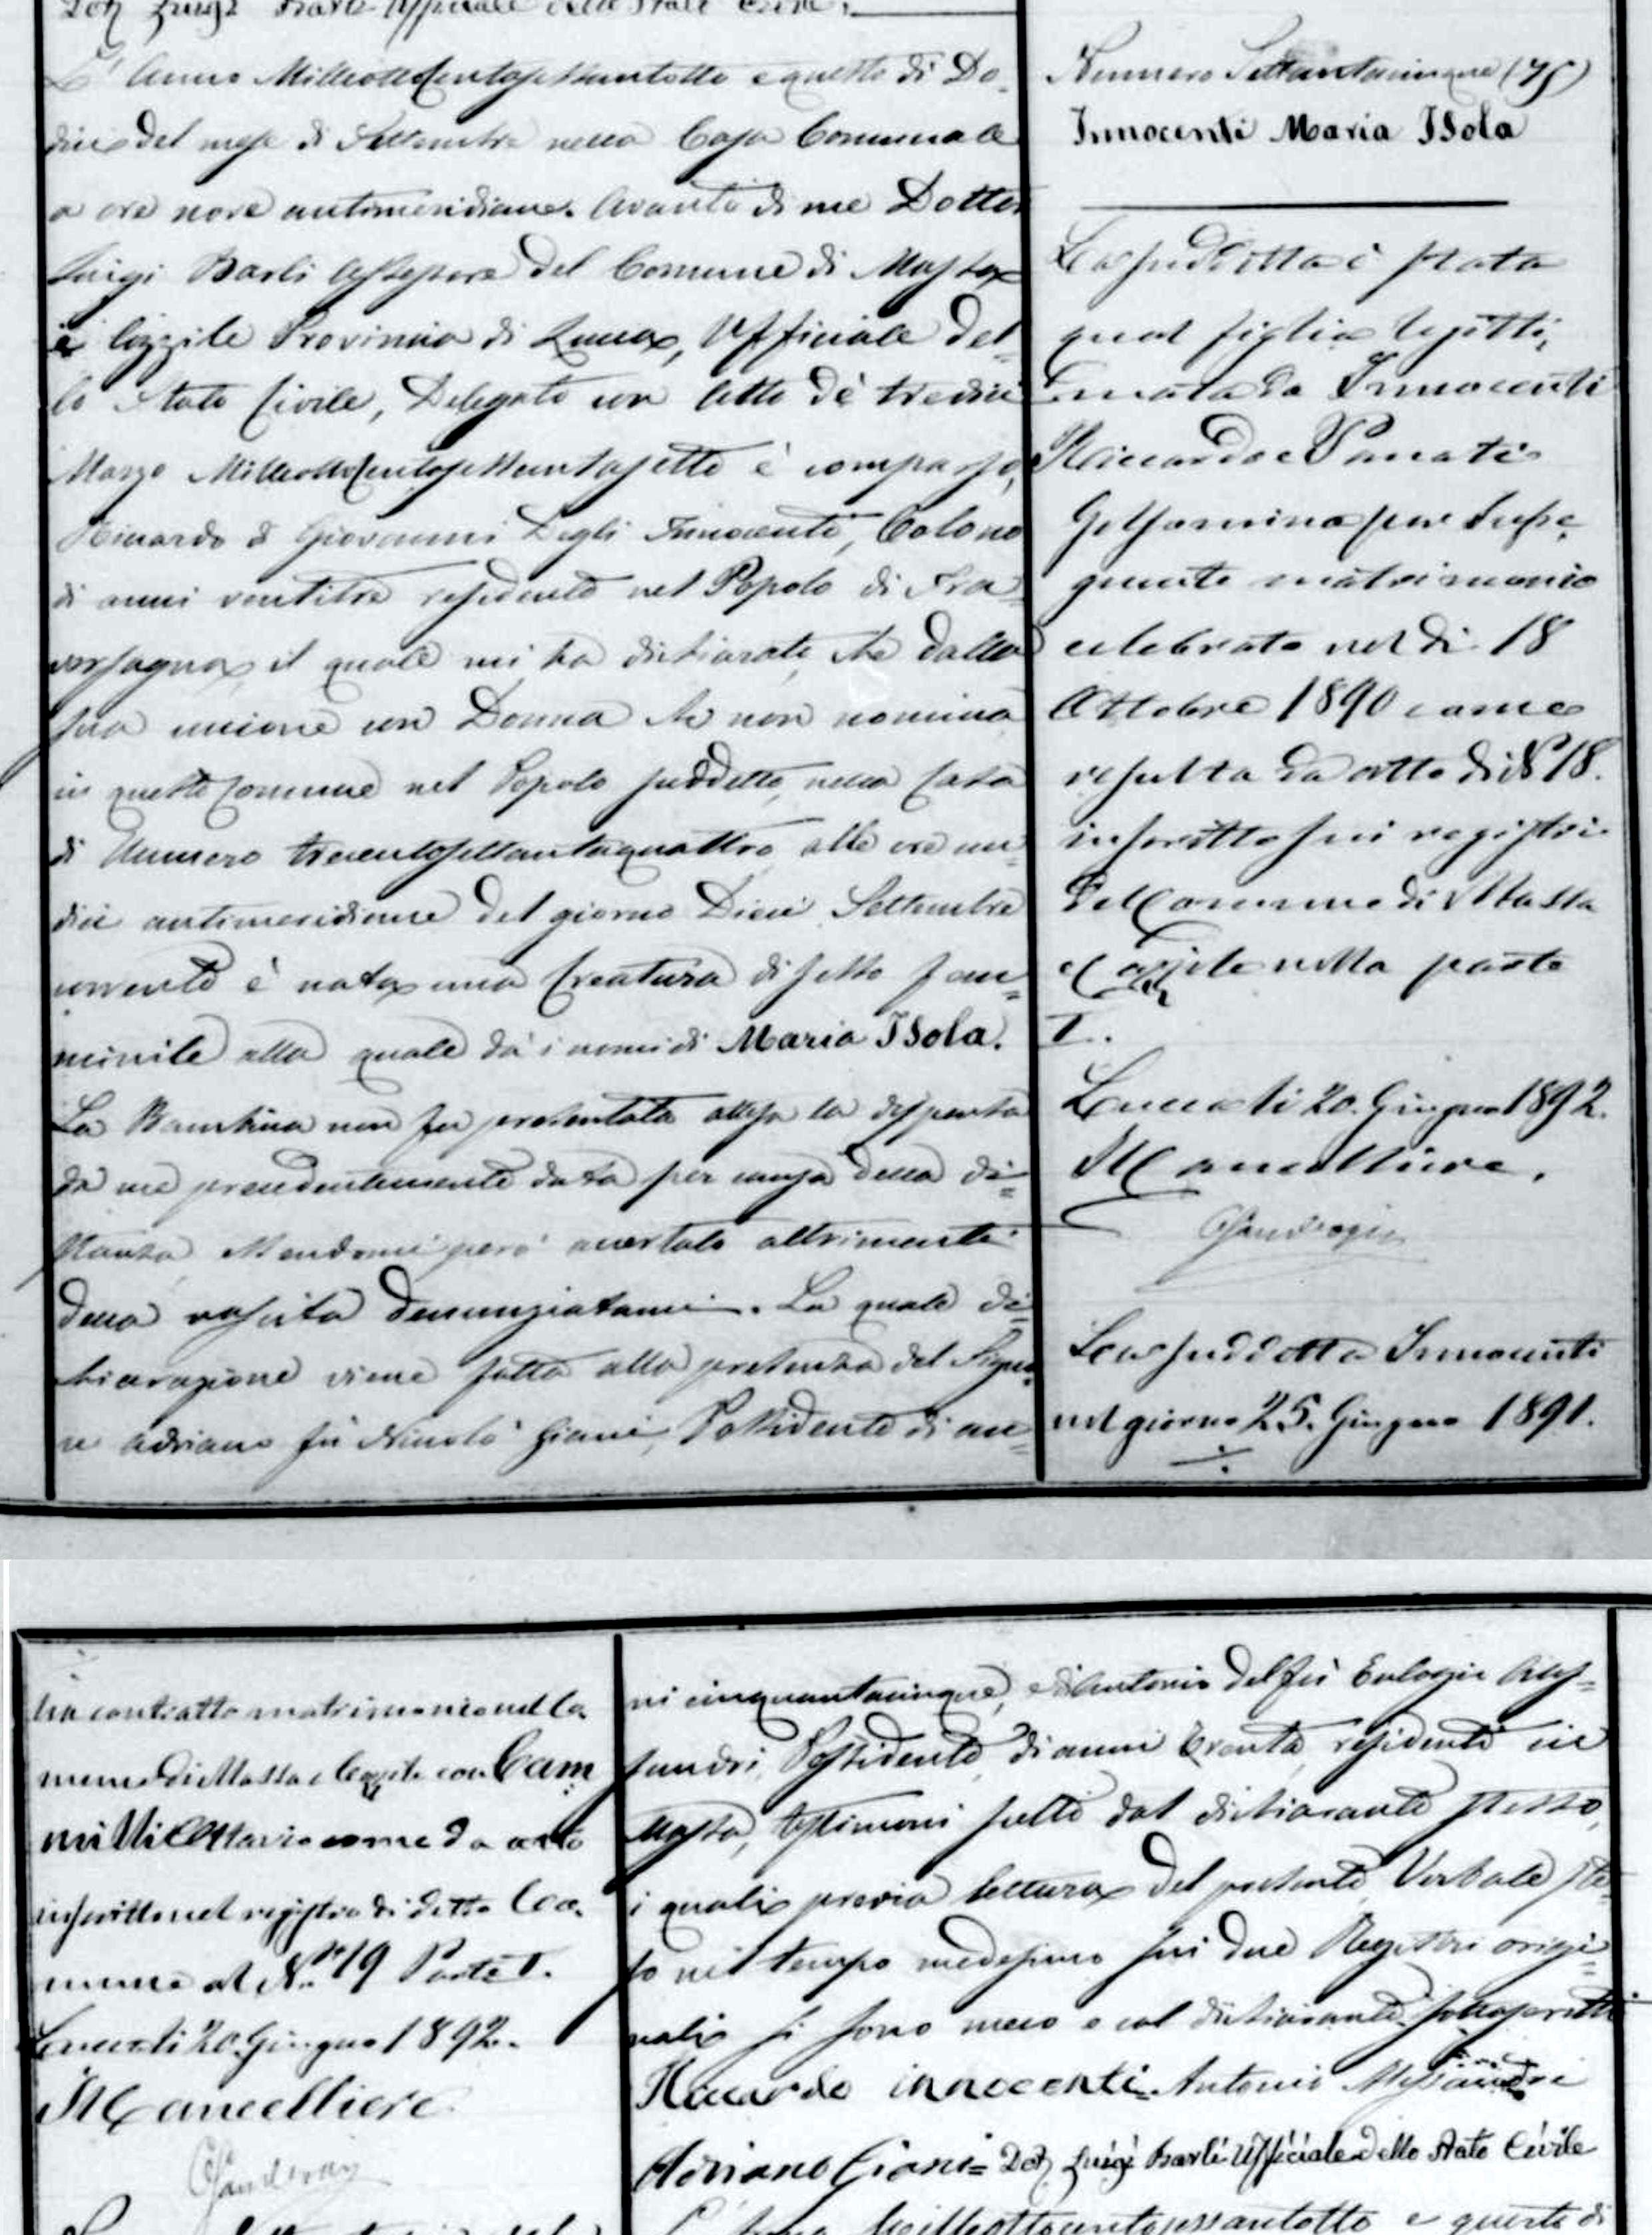 Dott Luigi Barli Ufficiale dello Stato Civile.
L'Anno Milleottocentosettantotto e questo dì Do-
dici del mese di Settembre nella Casa Comunale
a ore nove antimeridiane. Avanti di me Dottor
Luigi Barli Assessore del Comune di Massa
e Cozzile Provincia di Lucca, Ufficiale del-
lo Stato Civile, Delegato con atto de' tredici
Marzo Milleottocentosettantasette è comparso,
Riccardo di Giovanni Degli Innocenti, Colono
di anni ventitre residente nel Popolo di Tra-
versagna, il quale mi ha dichiarato, che dalla
sua unione con Donna che non nomina
in questo Comune nel Popolo suddetto, nella Casa
di Numero trecentosettantaquattro alle ore un-
dici antimeridiane del giorno Dieci Settembre
corrente è nata una Creatura di sesso fem-
minile alla quale dà i nomi di Maria Isola.
La Bambina non fu presentata attesa la dispensa
da me precedentemente data per causa della di-
stanza Essendomi però accertato altrimenti
della nascita denunziatami. La quale di-
chiarazione viene fatta alla presenza del Signo-
re Adriano fù Niccolò Giani, Possidente di an-
Numero Settantacinque (75)
Innocenti Maria Isola
La suddetta è stata
qual figlia legitti-
mata da Innocenti
Riccardo e Panati
Gelsomina per susse-
guente matrimonio
celebrato nel dì 18
Ottobre 1890 come
resulta da atto di N° 18.
inscritto sui registri
del Comune di Massa
e Cozzile nella parte
I.
Lucca li 20. Giugno 1892.
Il Cancelliere.
La suddetta Innocenti
nel giorno 25. Giugno 1891.
ha contratto matrimonio nel Co-
mune di Massa e Cozzile con Cam
milli Ottavio come da atto
inscritto nel registro di detto Co-
mune al N.° 19 Parte I.
Lucca li 20. Giugno 1892.
Il Cancelliere
ni cinquantacinque, e di Antonio del fù Eulogio Ales-
sandri, Possidente, di anni trenta, residenti in
Massa, testimoni scelti dal dichiarante stesso,
i quali previa lettura del presente Verbale ste-
so nel tempo medesimo sui due Registri origi-
nali si sono meco e col dichiarante sottoscritti
Riccardo innocenti. Antonio Alessandri
Adriano Giani = Dott Luigi Barli Ufficiale dello Stato Civile
L'Anno Milleottocentosettantotto e questo dì